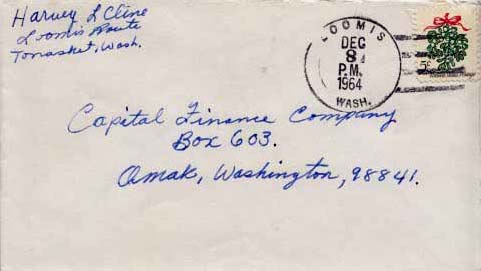 Harvey L Cline
Loomis Route
Tonasket, Wash.
LOOMIS
DEC
8
P.M.
1964
WASH.
5¢
Capital Finance Company
Box 603.
Omak, Washington, 98841.